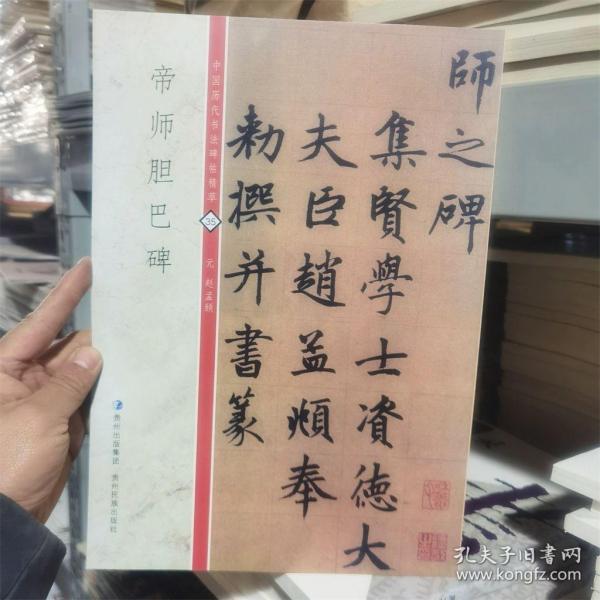 帝师胆巴碑
中国历代书法碑帖精萃
35
元 赵孟頫
贵州出版集团 贵州民族出版社
師之碑
集賢學士資德大
夫臣趙孟頫奉
勅撰并書篆
孔夫子旧书网
www.kongfz.com